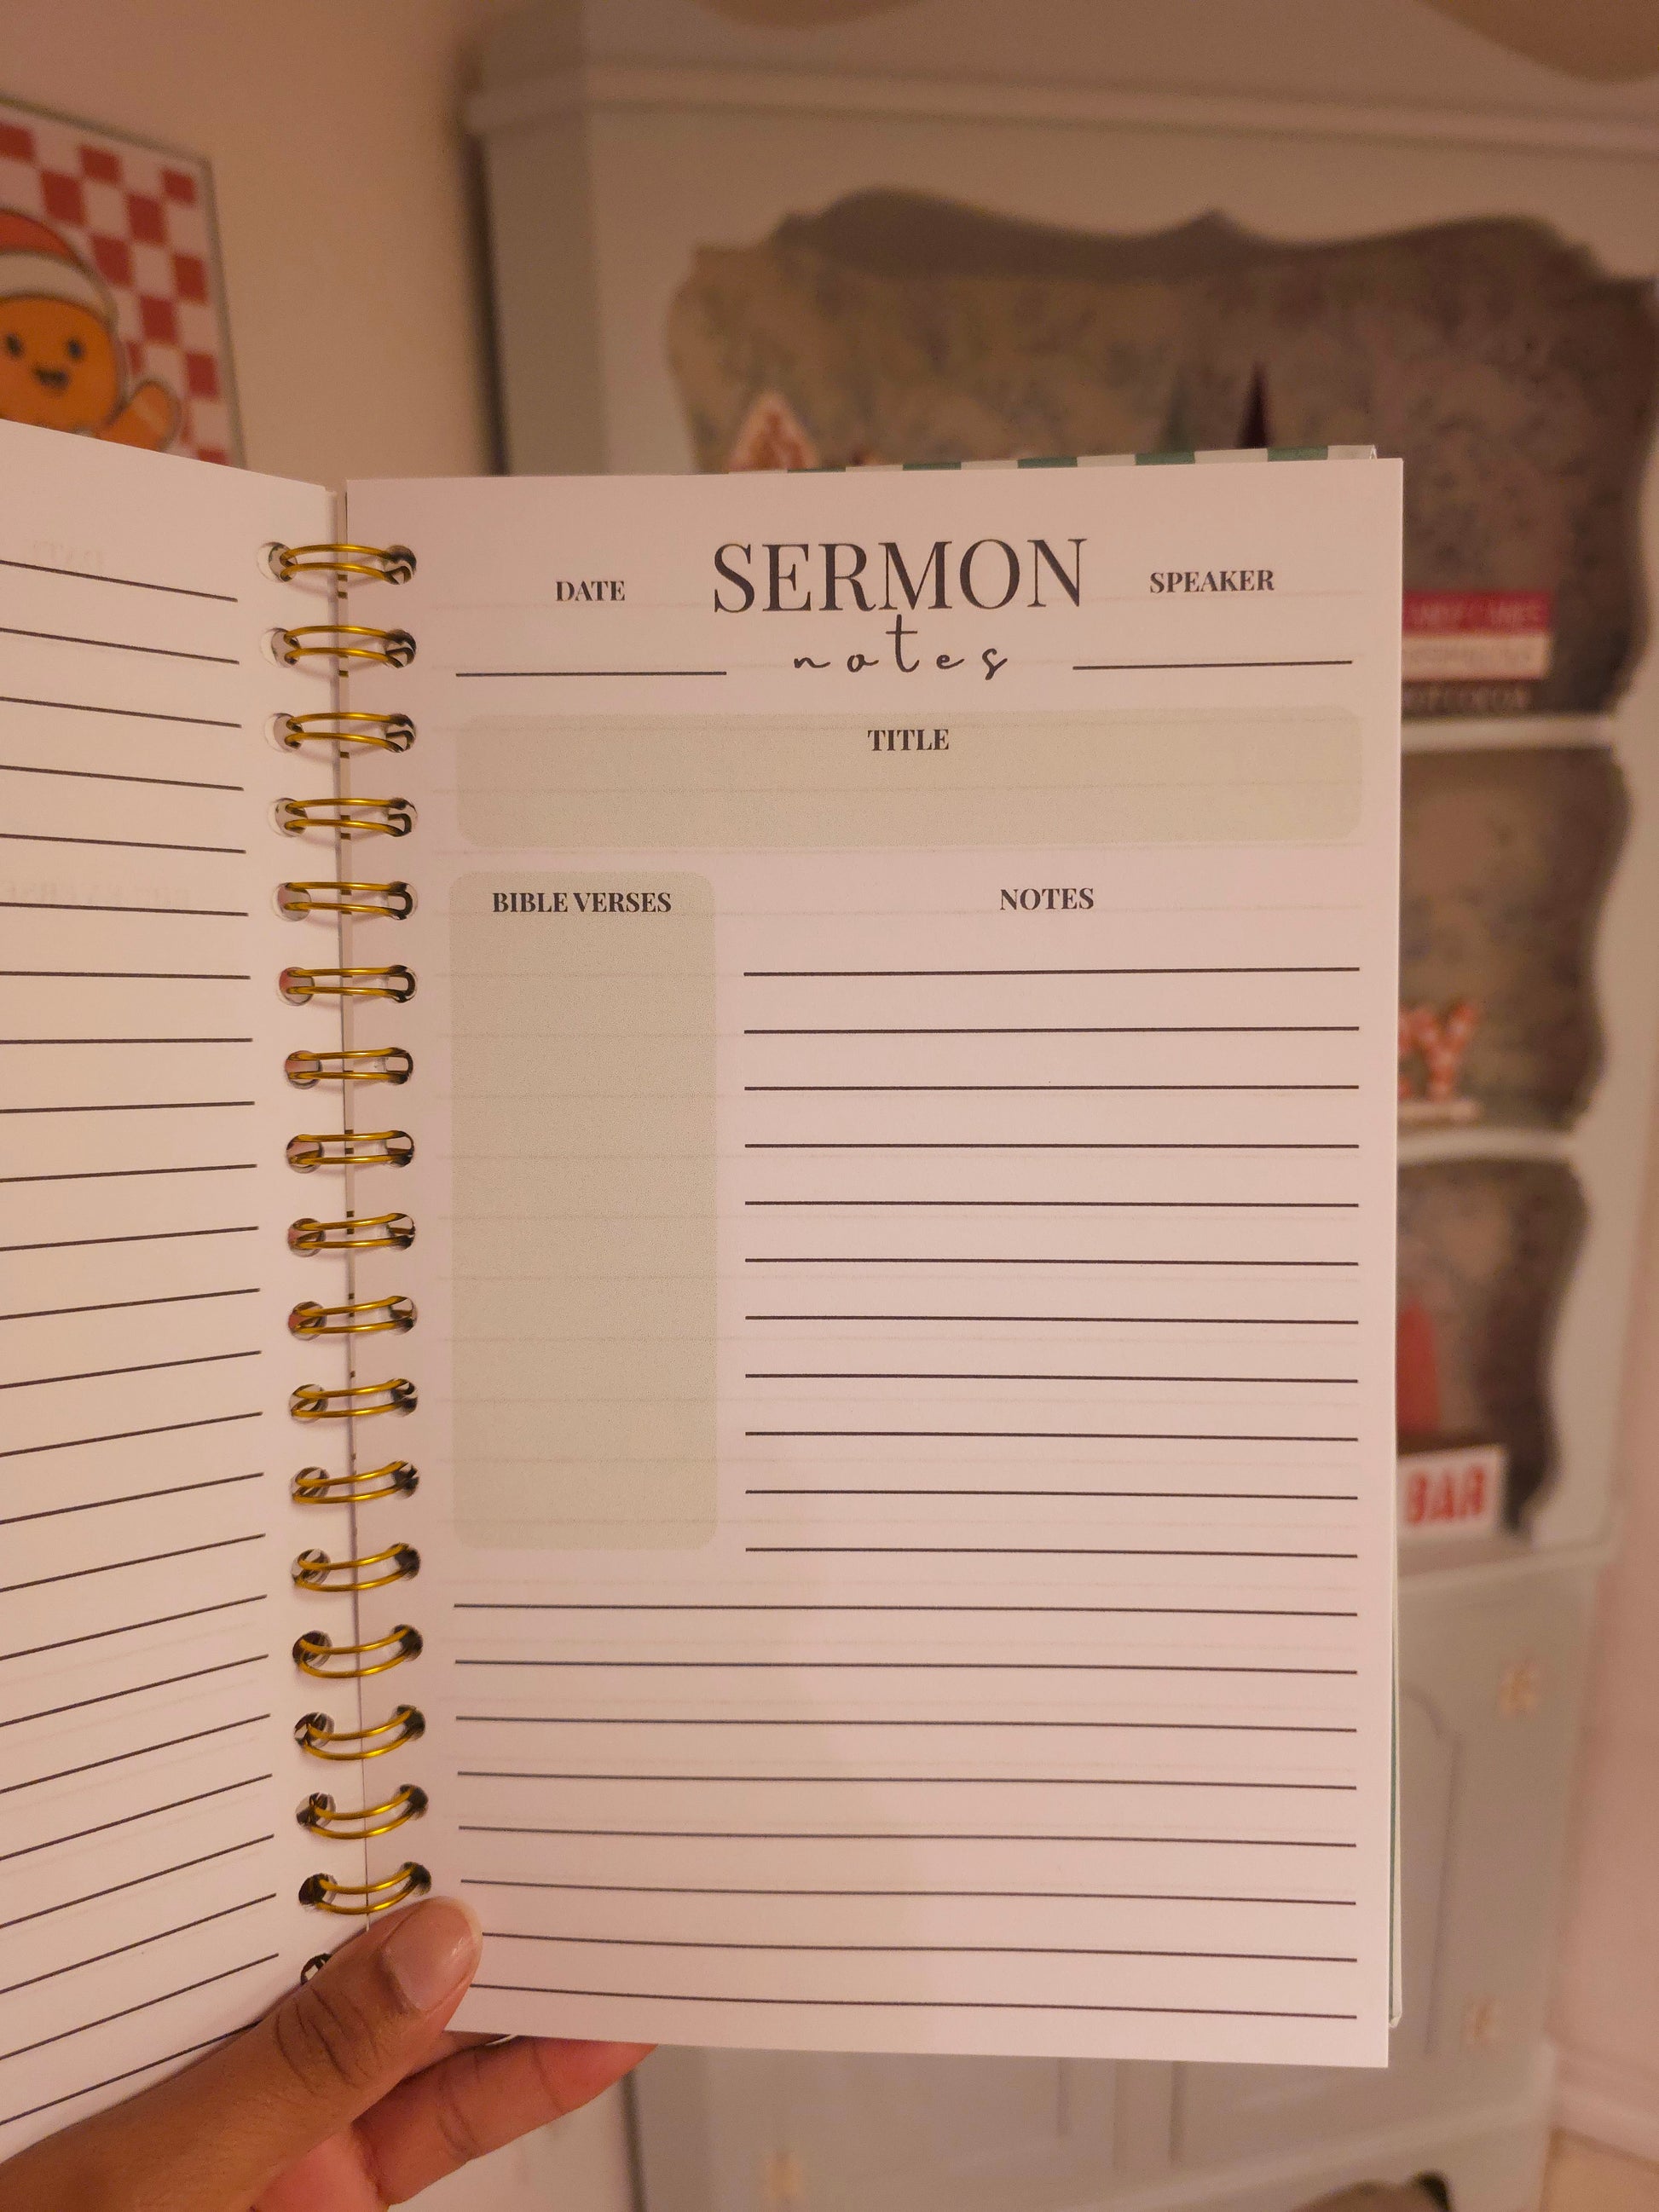 SERMON
notes
DATE
SPEAKER
TITLE
BIBLE VERSES
NOTES
BAR